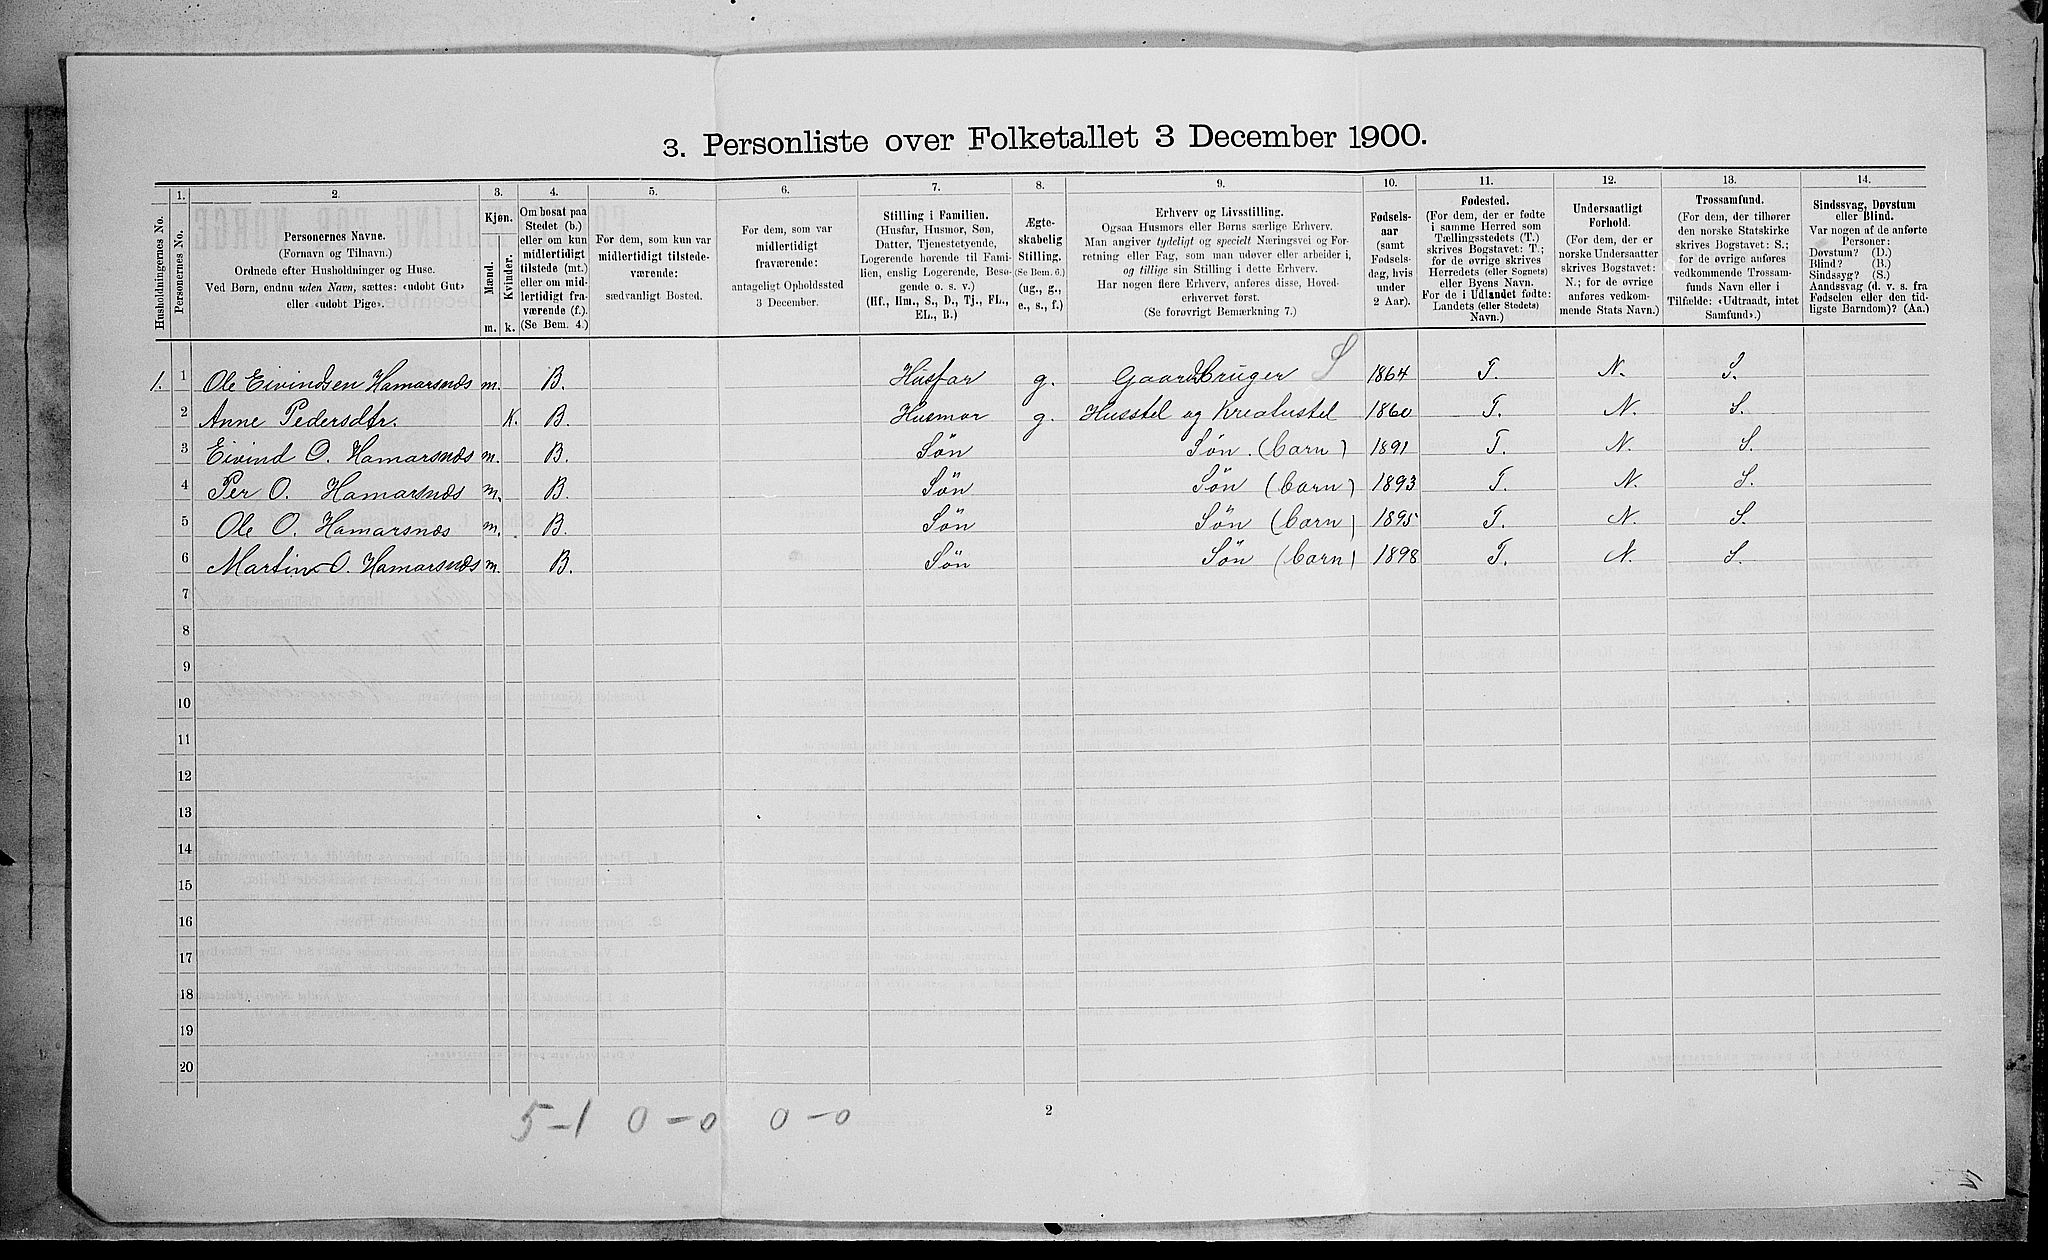 3. Personliste over Folketallet 3 December 1900.
Husholdningernes No.
1.
Personernes No.
2.
Personernes Navne.
(Fornavn og Tilnavn.)
Ordnede efter Husholdninger og Huse.
Ved Børn, endnu uden Navn, sættes: «udøbt Gut»
eller «udøbt Pige».
3.
Kjøn.
Mænd.
Kvinder.
m.
k.
4.
Om bosat paa
Stedet (b.)
eller om kun
midlertidigt
tilstede (mt.)
eller om mid-
lertidigt fra-
værende (f.).
(Se Bem. 4.)
5.
For dem, som kun var
midlertidigt tilstede-
værende:
sædvanligt Bosted.
6.
For dem, som var
midlertidigt
fraværende:
antageligt Opholdssted
3 December.
7.
Stilling i Familien.
(Husfar, Husmor, Søn,
Datter, Tjenestetyende,
Logerende hørende til Fami-
lien, enslig Logerende, Besø-
gende o. s. v.)
(Hf., Hm., S., D., Tj., FL.,
EL., B.)
8.
Ægte-
skabelig
Stilling.
(Se Bem. 6.)
(ug., g.,
e., s., f.)
9.
Erhverv og Livsstilling.
Ogsaa Husmors eller Børns særlige Erhverv.
Man angiver tydeligt og specielt Næringsvei og For-
retning eller Fag, som man udøver eller arbeider i,
og tillige sin Stilling i dette Erhverv.
Har nogen flere Erhverv, anføres disse, Hoved-
erhvervet først.
(Se forøvrigt Bemærkning 7.)
10.
Fødsels-
aar
(samt
Fødsels-
dag, hvis
under
2 Aar).
11.
Fødested.
(For dem, der er fødte
i samme Herred som
Tællingsstedets (T.)
skrives Bogstavet: T.;
for de øvrige skrives
Herredets (eller Sognets)
eller Byens Navn.
For de i Udlandet fødte:
Landets (eller Stedets)
Navn.)
12.
Undersaatligt
Forhold.
(For dem, der er
norske Undersaatter
skrives Bogstavet:
N.; for de øvrige
anføres vedkom-
mende Stats Navn.)
13.
Trossamfund.
(For dem, der tilhører
den norske Statskirke
skrives Bogstavet: S.;
for de øvrige anføres
vedkommende Trossam-
funds Navn eller i
Tilfælde: «Udtraadt, intet
Samfund».)
14.
Sindssvag, Døvstum
eller Blind.
Var nogen af de anførte
Personer:
Døvstum? (D.)
Blind? (B.)
Sindssyg? (S.)
Aandssvag (d. v. s. fra
Fødselen eller den tid-
ligste Barndom)? (Aa.)
1. 1 Ole Eivindsen Hamarsnæs m. B. Husfar g. Gaardbruger S 1864 T. N. S.
2 Anne Pedersdtr. K. B. Husmor g. Husstel og Kreaturstel 1860 T. N. S.
3 Eivind O. Hamarsnæs m. B. Søn Søn. (barn) 1891 T. N. S.
4 Per O. Hamarsnæs m. B. Søn Søn (barn) 1893 T. N. S.
5 Ole O. Hamarsnæs m. B. Søn Søn (barn) 1895 T. N. S.
6 Martin O. Hamarsnæs m. B. Søn Søn (barn) 1898 T. N. S.
7
8
9
10
11
12
13
14
15
16
17
18
19
20
5-1 0-0 0-0
2